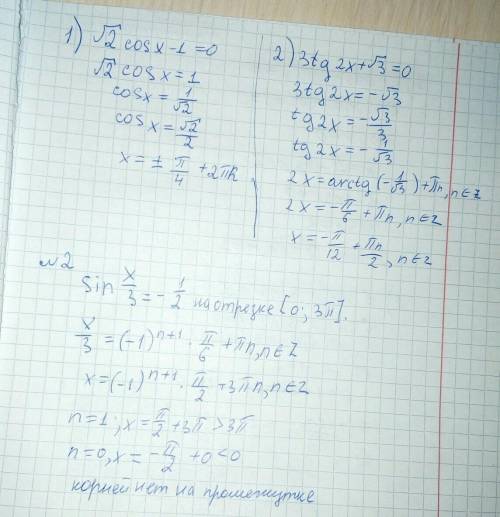 1) √2 cosx-1=0
√2 cosx=1
cosx=1/√2
cosx=√2/2
x=± π/4 +2πk
2) 3tg2x+√3=0
3tg2x=-√3
tg2x=-√3/3
tg2x=-1/√3
2x=arctg(-1/√3)+πn, n∈Z
2x=-π/6+πn, n∈Z
x=-π/12+πn/2, n∈Z
№2
sin x/3=-1/2 на отрезке [0; 3π].
x/3=(-1)^{n+1}·π/6+πn, n∈Z
x=(-1)^{n+1}·π/2+3πn, n∈Z
n=1; x=π/2+3π>3π
n=0, x=-π/2+0<0
корней нет на промежутке